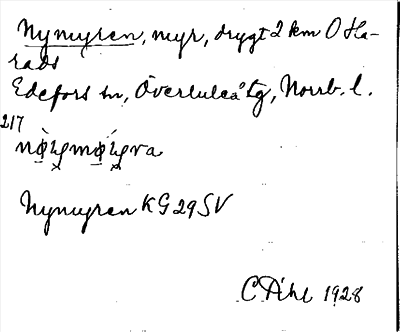 Nymyren, myr, drygt 2 km O Ha-
rads
Edefors sn, Överluleå tg, Norrb. l.
217
Nymyren KG 29 SV
C Åhl 1928